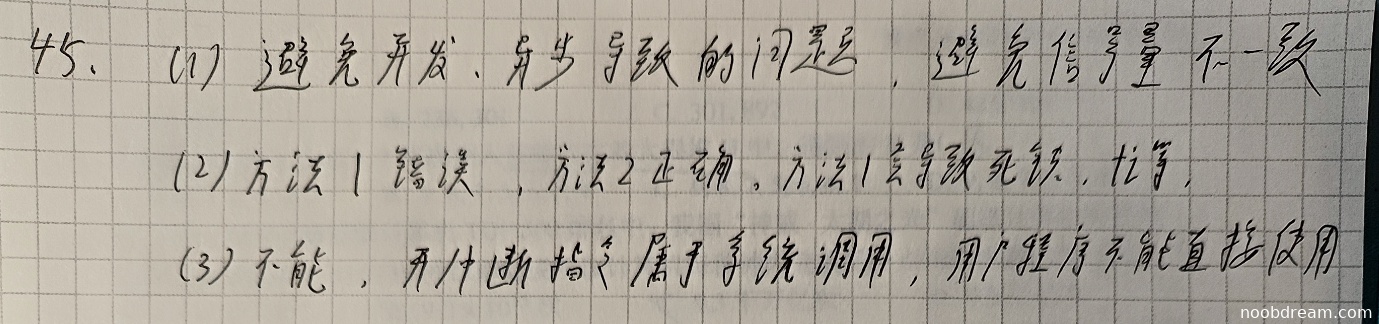 45. (1) 避免并发、异步导致的问题,避免信号量不一致
(2) 方法1错误,方法2正确,方法1会导致死锁,忙等,
(3) 不能,开/中断指令属于系统调用,用户程序不能直接使用
noobdream.com